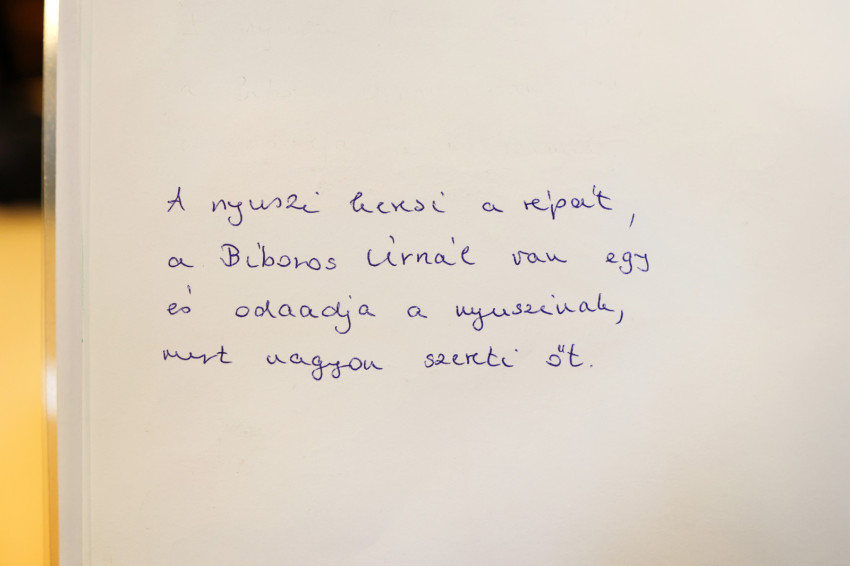 A nyuszi keresi a répát,
a Bíboros Úrnál van egy
és odaadja a nyuszinak,
mert nagyon szereti őt.